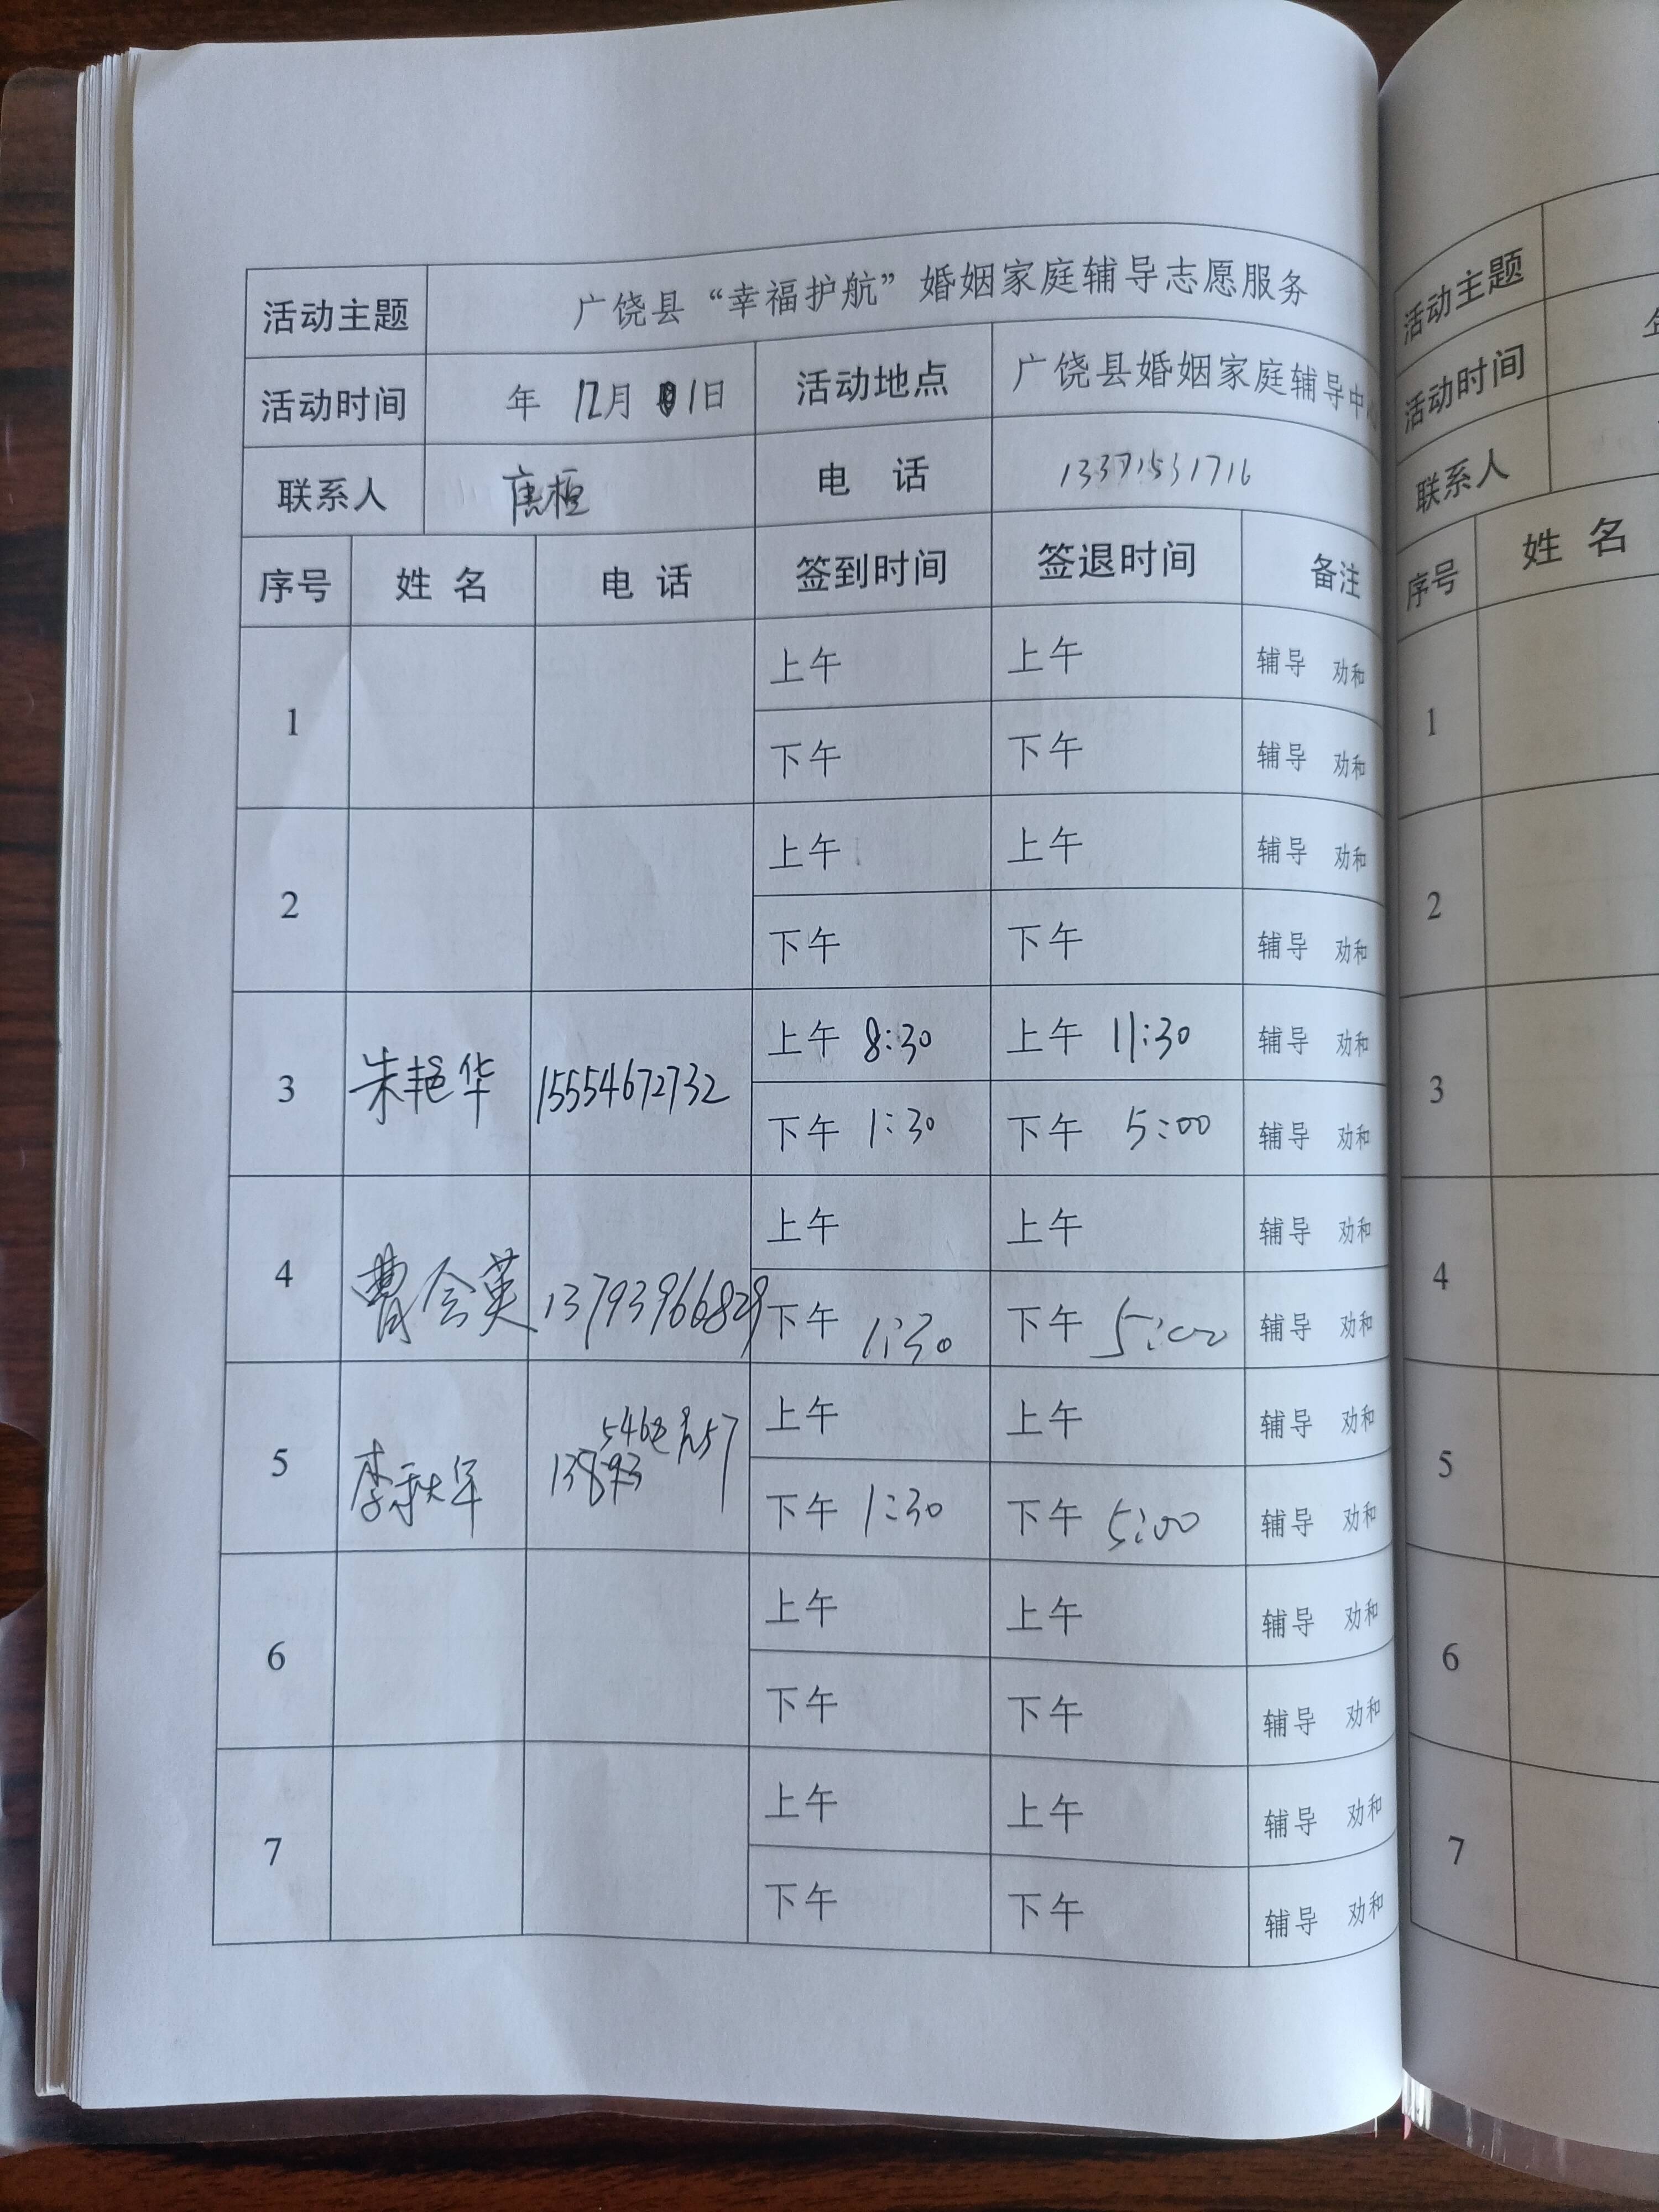 活动主题 广饶县“幸福护航”婚姻家庭辅导志愿服务
活动时间 年 12月 1日 活动地点 广饶县婚姻家庭辅导中心
联系人 唐桓 电 话 13371531716
序号 姓 名 电 话 签到时间 签退时间 备注
1 上午 上午 辅导 劝和
下午 下午 辅导 劝和
2 上午 上午 辅导 劝和
下午 下午 辅导 劝和
3 朱艳华 15554672732 上午 8:30 上午 11:30 辅导 劝和
下午 1:30 下午 5:00 辅导 劝和
4 曹会英 13793966829 上午 上午 辅导 劝和
下午 1:30 下午 5:00 辅导 劝和
5 李秋年 上午 上午 辅导 劝和
下午 1:30 下午 5:00 辅导 劝和
6 上午 上午 辅导 劝和
下午 下午 辅导 劝和
7 上午 上午 辅导 劝和
下午 下午 辅导 劝和
活动主题
活动时间
联系人
序号 姓 名
1
2
3
4
5
6
7